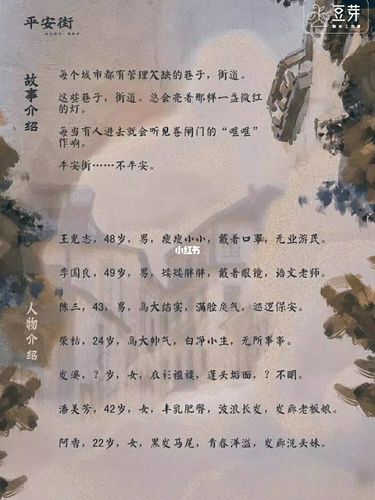 平安街
豆芽
故事介绍
每个城市都有管理欠缺的巷子，街道。
这些巷子，街道。总会亮着那样一盏微红
的灯。
每当有人进去就会听见卷闸门的“哐哐”
作响。
平安街……不平安。
小红书
人物介绍
王宪志，48岁，男，瘦瘦小小，戴着口罩，无业游民。
李国良，49岁，男，矮矮胖胖，戴着眼镜，语文老师。
陈三，43，男，高大结实，满脸戾气，巡逻保安。
荣栝，24岁，高大帅气，白净小生，无所事事。
发婆，？岁，女，衣衫褴褛，蓬头垢面，？不明。
潘美芳，42岁，女，丰乳肥臀，波浪长发，发廊老板娘。
阿香，22岁，女，黑发马尾，青春洋溢，发廊洗头妹。